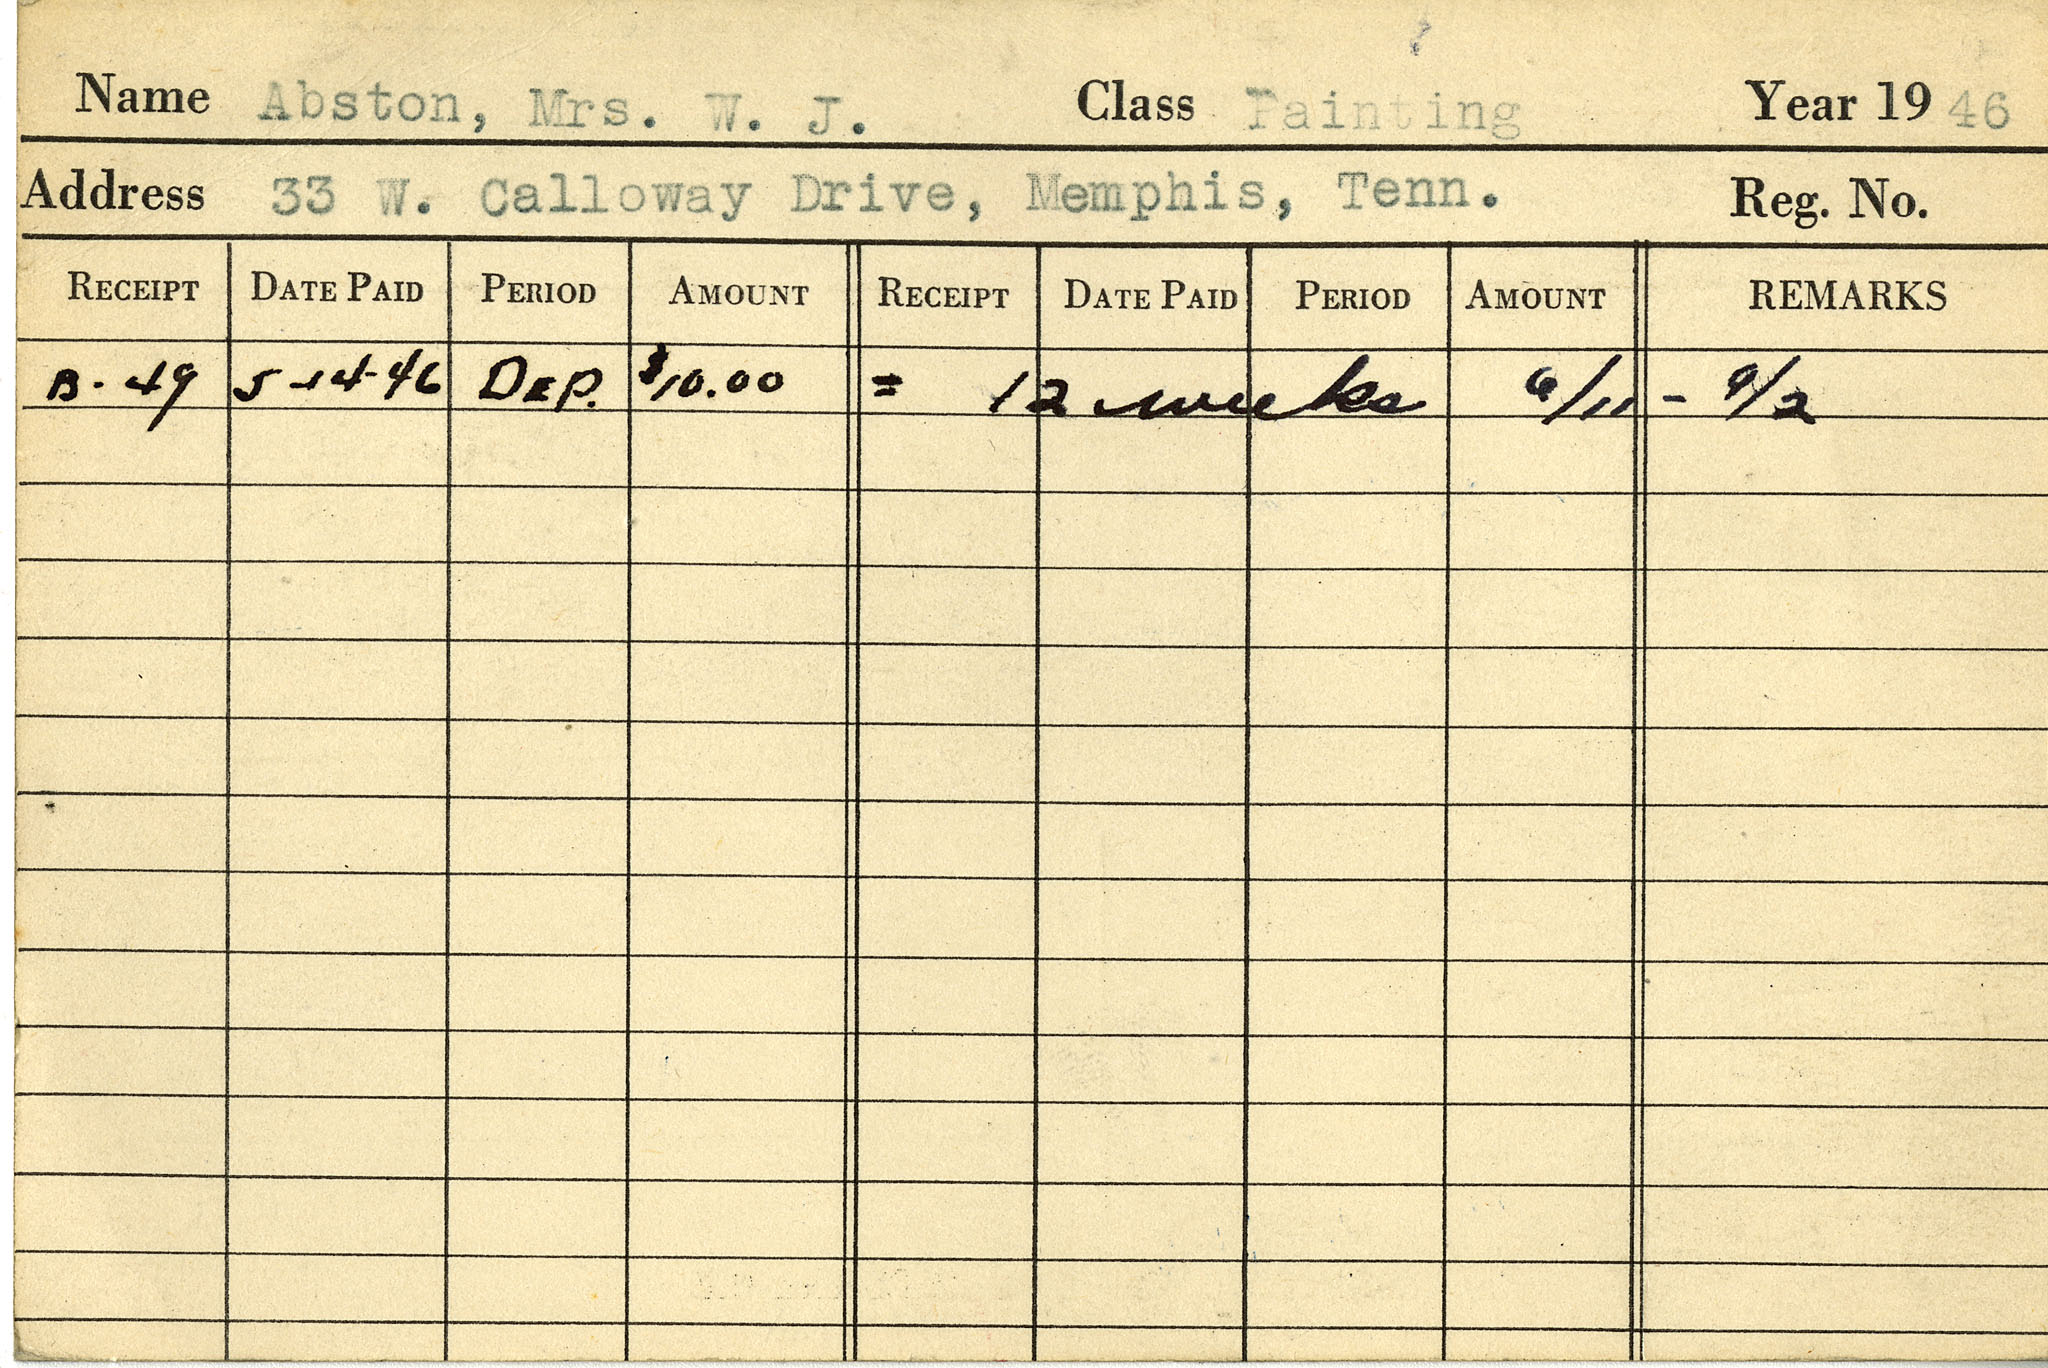 Name Abston, Mrs. W. J. Class Painting Year 19 46
Address 33 W. Calloway Drive, Memphis, Tenn. Reg. No.
RECEIPT DATE PAID PERIOD AMOUNT RECEIPT DATE PAID PERIOD AMOUNT REMARKS
B-49 5-14-46 DEP. $10.00 = 12 weeks 6/11 - 9/2